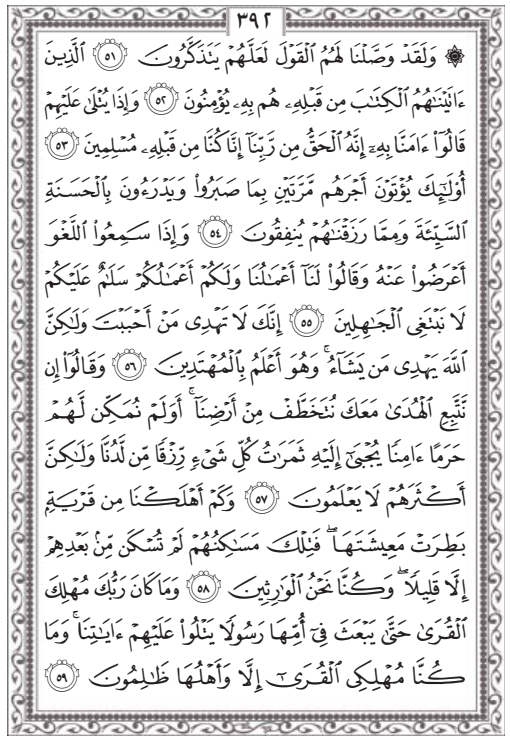 ٣٩٢
۞ وَلَقَدْ وَصَّلْنَا لَهُمُ ٱلْقَوْلَ لَعَلَّهُمْ يَتَذَكَّرُونَ ٥١ ٱلَّذِينَ
ءَاتَيْنَٰهُمُ ٱلْكِتَٰبَ مِن قَبْلِهِۦ هُم بِهِۦ يُؤْمِنُونَ ٥٢ وَإِذَا يُتْلَىٰ عَلَيْهِمْ
قَالُوٓا۟ ءَامَنَّا بِهِۦٓ إِنَّهُ ٱلْحَقُّ مِن رَّبِّنَآ إِنَّا كُنَّا مِن قَبْلِهِۦ مُسْلِمِينَ ٥٣
أُو۟لَٰٓئِكَ يُؤْتَوْنَ أَجْرَهُم مَّرَّتَيْنِ بِمَا صَبَرُوا۟ وَيَدْرَءُونَ بِٱلْحَسَنَةِ
ٱلسَّيِّئَةَ وَمِمَّا رَزَقْنَٰهُمْ يُنفِقُونَ ٥٤ وَإِذَا سَمِعُوا۟ ٱللَّغْوَ
أَعْرَضُوا۟ عَنْهُ وَقَالُوا۟ لَنَآ أَعْمَٰلُنَا وَلَكُمْ أَعْمَٰلُكُمْ سَلَٰمٌ عَلَيْكُمْ
لَا نَبْتَغِى ٱلْجَٰهِلِينَ ٥٥ إِنَّكَ لَا تَهْدِى مَنْ أَحْبَبْتَ وَلَٰكِنَّ
ٱللَّهَ يَهْدِى مَن يَشَآءُ ۚ وَهُوَ أَعْلَمُ بِٱلْمُهْتَدِينَ ٥٦ وَقَالُوٓا۟ إِن
نَّتَّبِعِ ٱلْهُدَىٰ مَعَكَ نُتَخَطَّفْ مِنْ أَرْضِنَآ ۚ أَوَلَمْ نُمَكِّن لَّهُمْ
حَرَمًا ءَامِنًا يُجْبَىٰٓ إِلَيْهِ ثَمَرَٰتُ كُلِّ شَىْءٍ رِّزْقًا مِّن لَّدُنَّا وَلَٰكِنَّ
أَكْثَرَهُمْ لَا يَعْلَمُونَ ٥٧ وَكَمْ أَهْلَكْنَا مِن قَرْيَةٍۭ
بَطِرَتْ مَعِيشَتَهَا ۖ فَتِلْكَ مَسَٰكِنُهُمْ لَمْ تُسْكَن مِّنۢ بَعْدِهِمْ
إِلَّا قَلِيلًا ۖ وَكُنَّا نَحْنُ ٱلْوَٰرِثِينَ ٥٨ وَمَا كَانَ رَبُّكَ مُهْلِكَ
ٱلْقُرَىٰ حَتَّىٰ يَبْعَثَ فِىٓ أُمِّهَا رَسُولًا يَتْلُوا۟ عَلَيْهِمْ ءَايَٰتِنَا ۚ وَمَا
كُنَّا مُهْلِكِى ٱلْقُرَىٰٓ إِلَّا وَأَهْلُهَا ظَٰلِمُونَ ٥٩